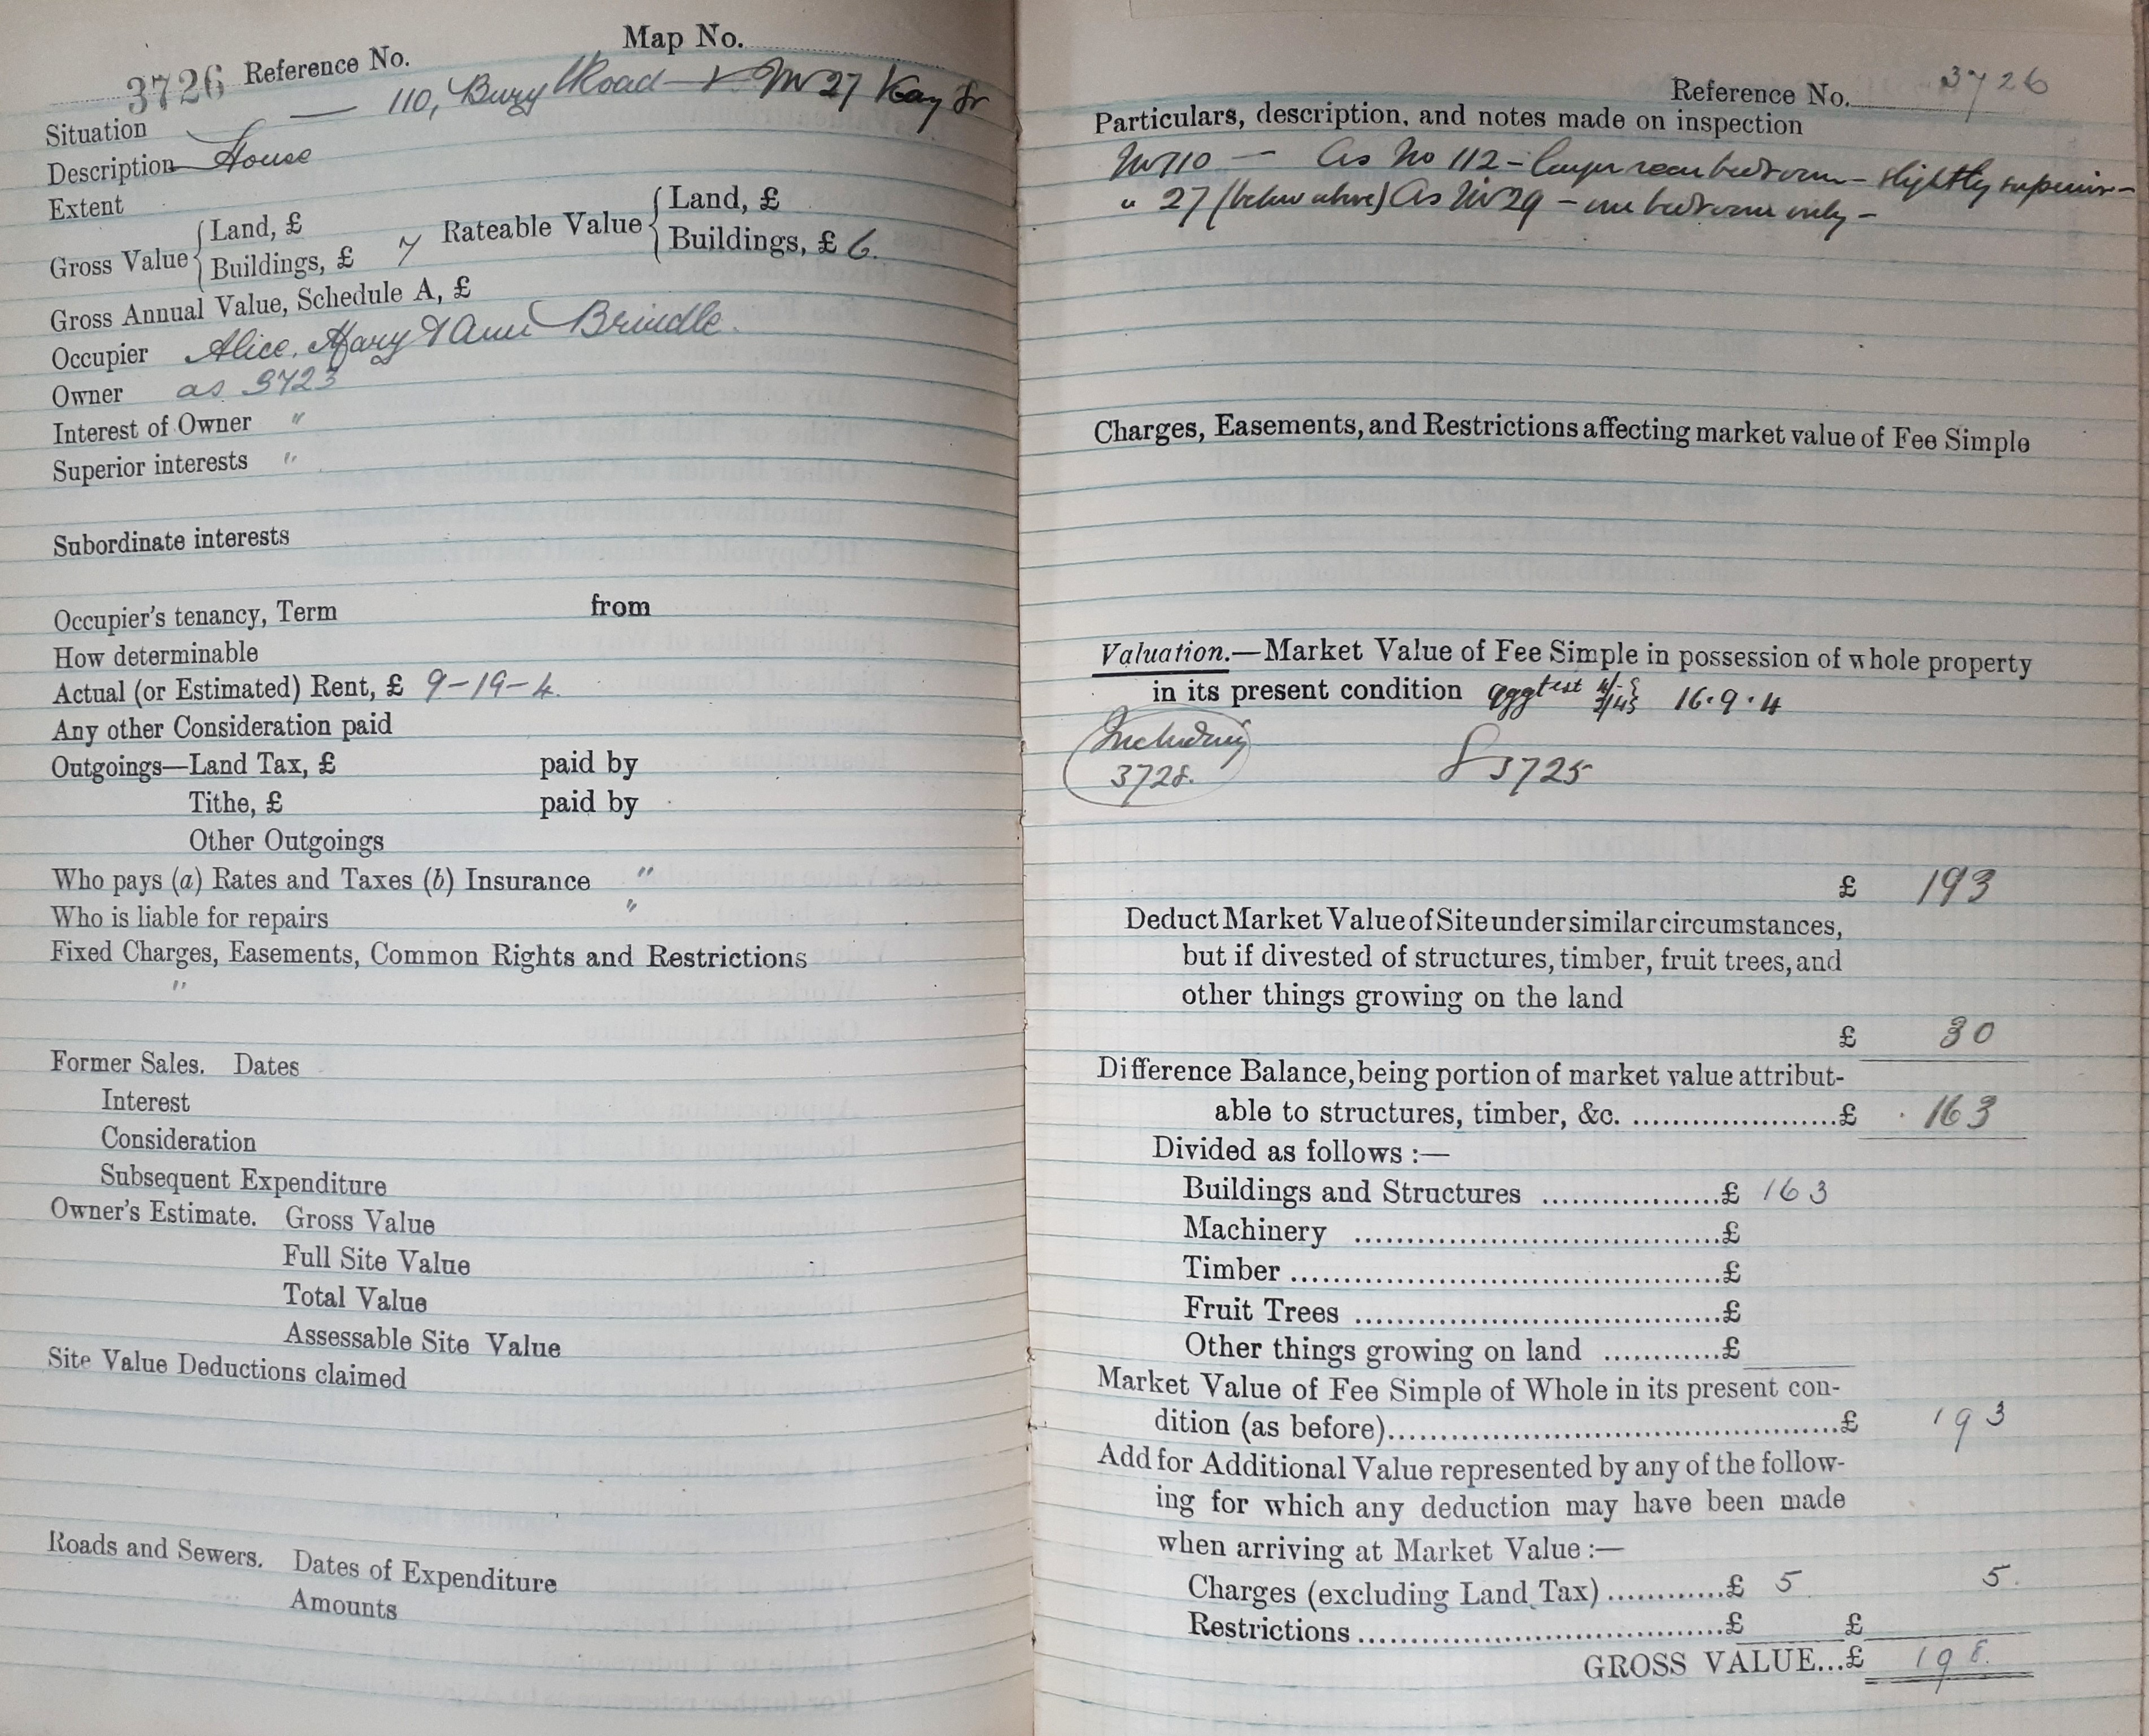 Map No.
3726 Reference No.
Situation 110, Bury Road & No 27 Kay St
Description House
Extent
Gross Value { Land, £
Buildings, £ 7 Rateable Value { Land, £
Buildings, £ 6.
Gross Annual Value, Schedule A, £
Occupier Alice, Mary & Ann Brindle.
Owner as 3723
Interest of Owner "
Superior interests "
Subordinate interests
Occupier's tenancy, Term from
How determinable
Actual (or Estimated) Rent, £ 9-19-4.
Any other Consideration paid
Outgoings—Land Tax, £ paid by
Tithe, £ paid by
Other Outgoings
Who pays (a) Rates and Taxes (b) Insurance "
Who is liable for repairs "
Fixed Charges, Easements, Common Rights and Restrictions
"
Former Sales. Dates
Interest
Consideration
Subsequent Expenditure
Owner's Estimate. Gross Value
Full Site Value
Total Value
Assessable Site Value
Site Value Deductions claimed
Roads and Sewers. Dates of Expenditure
Amounts
Reference No. 3726
Particulars, description, and notes made on inspection
No 110 — As No 112 – larger rear bedroom – slightly superior –
" 27 (below above) As No 29 – one bedroom only –
Charges, Easements, and Restrictions affecting market value of Fee Simple
Valuation.—Market Value of Fee Simple in possession of whole property
in its present condition 16.9.4
Including
3728. 3725
£ 193
Deduct Market Value of Site under similar circumstances,
but if divested of structures, timber, fruit trees, and
other things growing on the land
£ 30
Difference Balance, being portion of market value attribut-
able to structures, timber, &c. .....................£ 163
Divided as follows :—
Buildings and Structures ..................£ 163
Machinery .....................................£
Timber ...........................................£
Fruit Trees .....................................£
Other things growing on land ............£
Market Value of Fee Simple of Whole in its present con-
dition (as before)..............................................£ 193
Add for Additional Value represented by any of the follow-
ing for which any deduction may have been made
when arriving at Market Value :—
Charges (excluding Land Tax) ............£ 5 5.
Restrictions .....................................£ £
GROSS VALUE...£ 198.